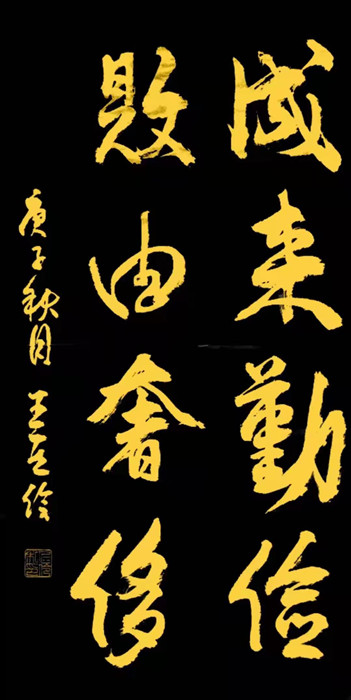 成来勤俭
败由奢侈
庚子秋月 王